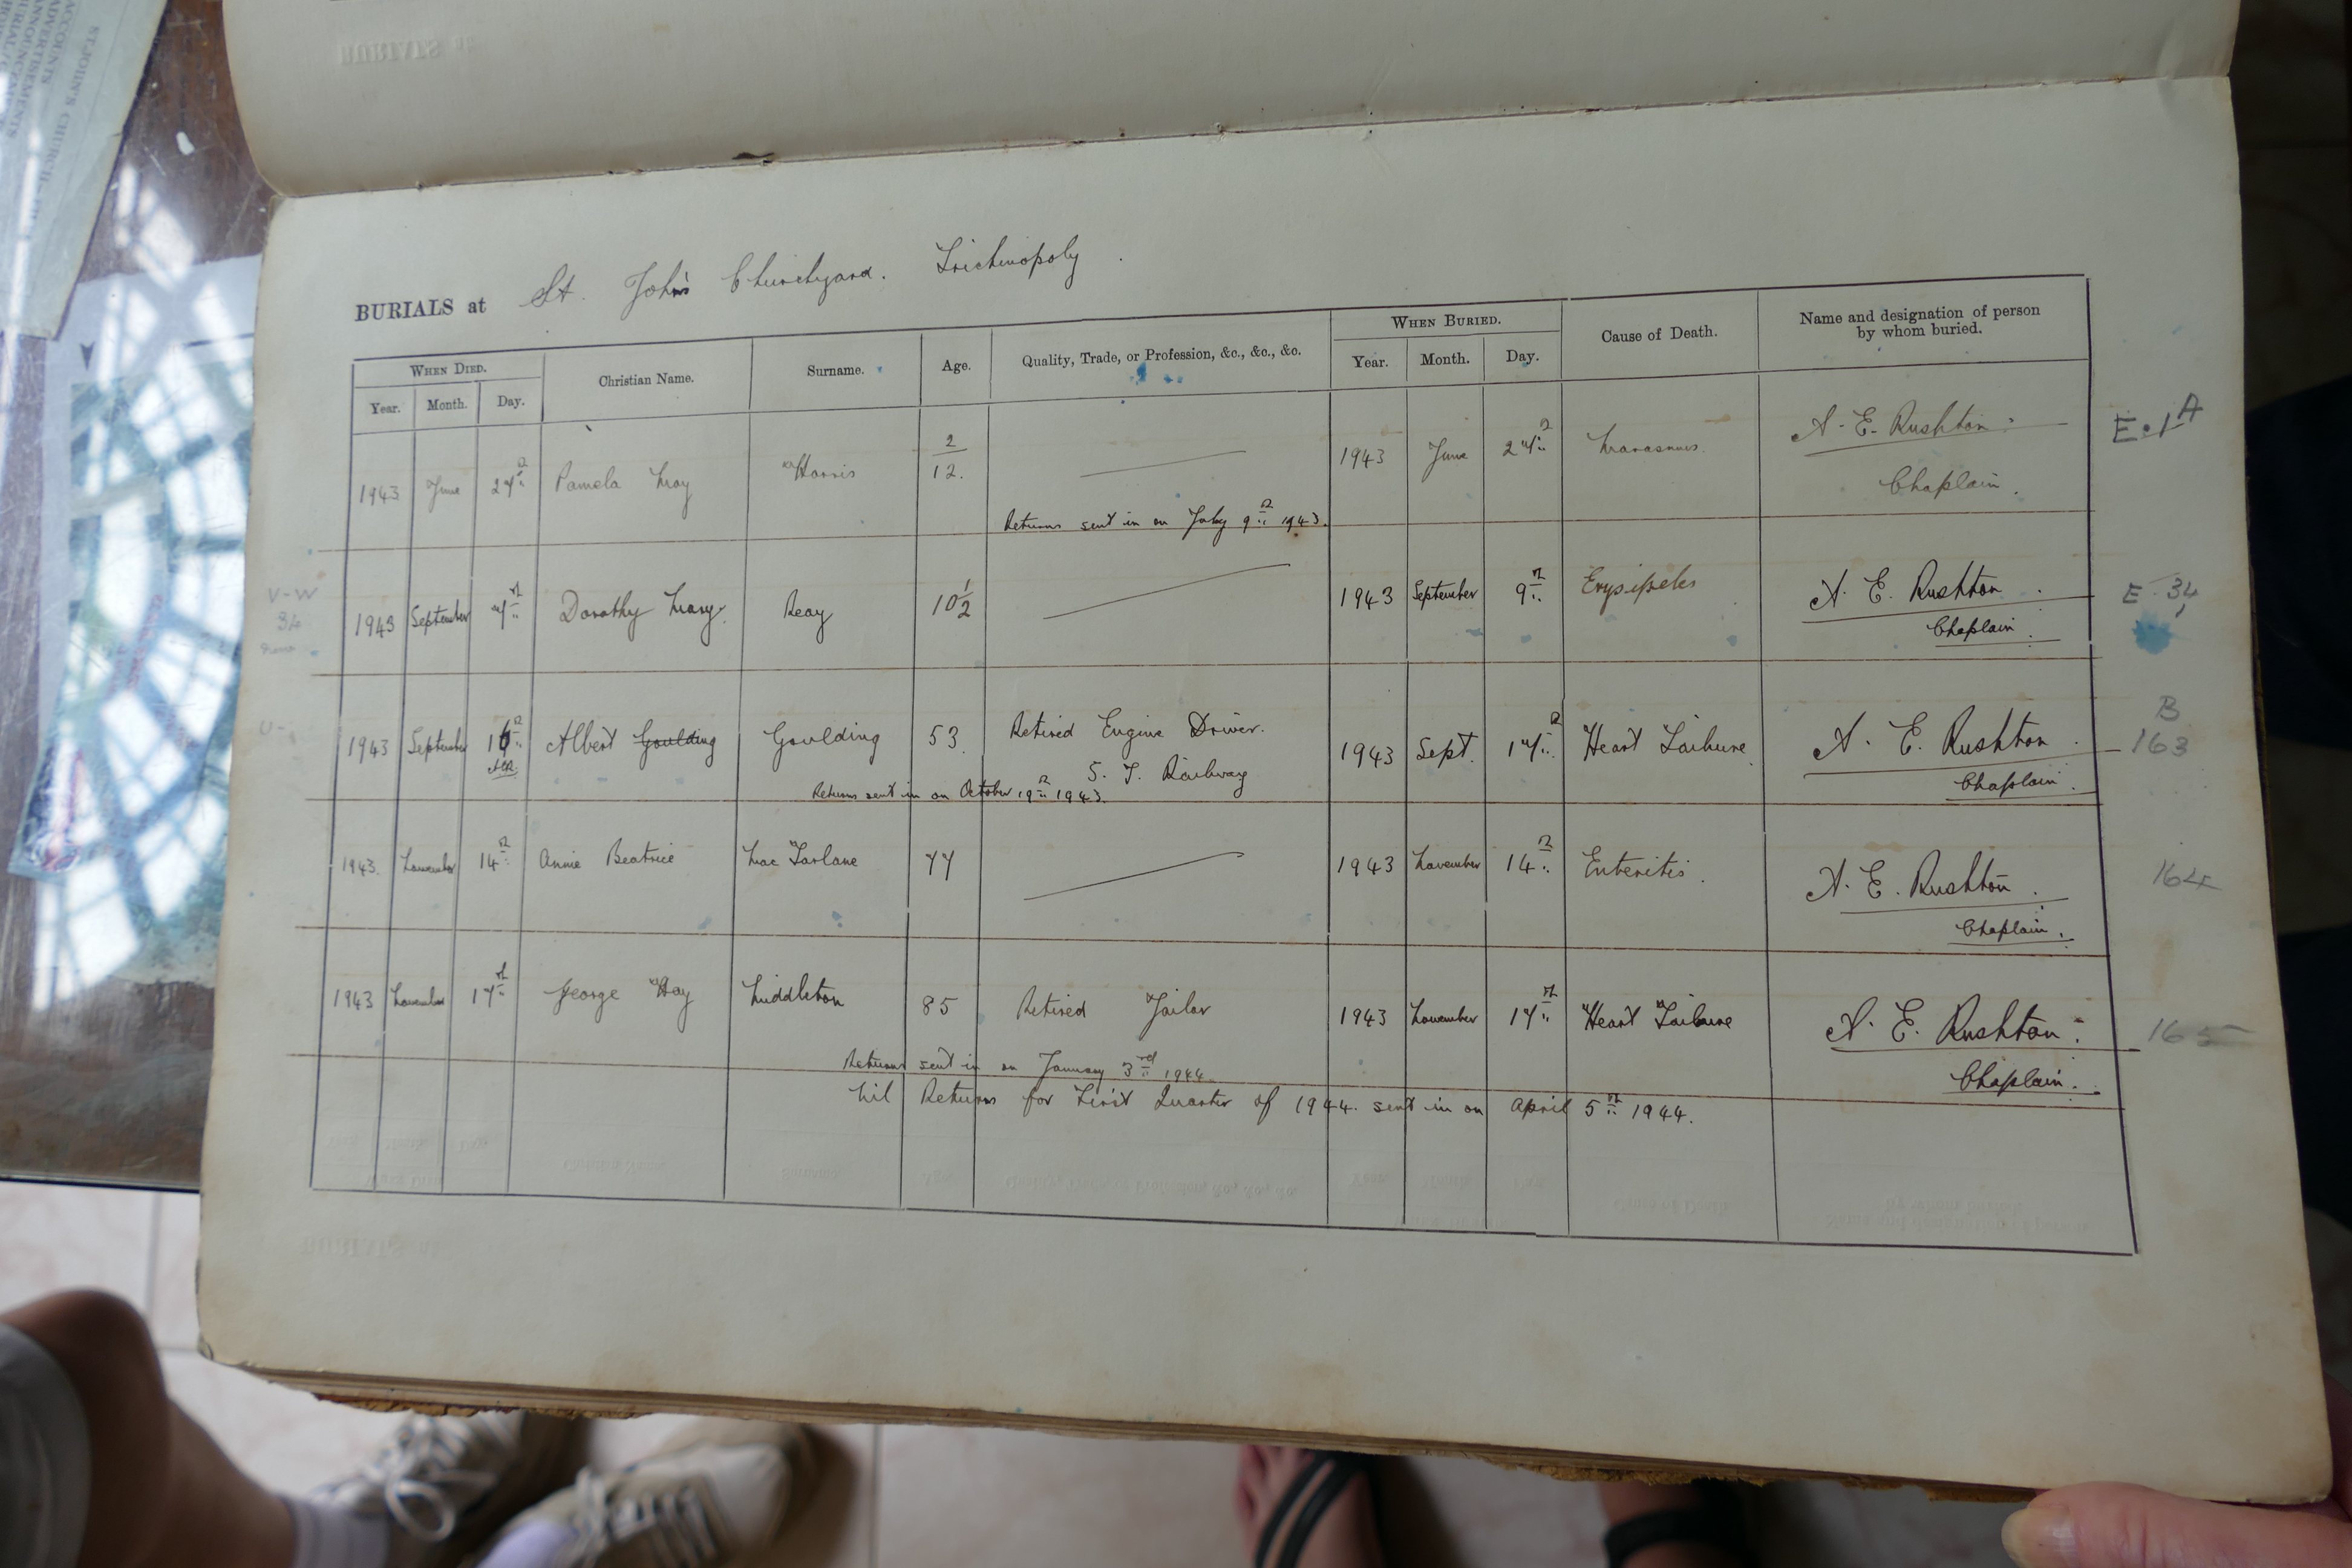 ST. JOHN'S CHURCH
ACCOUNTS
ADVERTISEMENTS
BURIALS at St. John's Churchyard. Trichinopoly.
WHEN DIED. Christian Name. Surname. Age. Quality, Trade, or Profession, &c., &c., &c. WHEN BURIED. Cause of Death. Name and designation of person by whom buried.
Year. Month. Day. Year. Month. Day.
1943 June 27th Pamela May Harris 2/12. 1943 June 27th Marasmus. A. E. Rushton. E.1A
Chaplain.
Returns sent in on July 9th 1943.
V-W
34
1943 September 7th Dorothy Mary. Reay 10½ 1943 September 9th Erysipelas A. E. Rushton. E 34
Chaplain.
1943 September 16th Albert Goulding Goulding 53. Retired Engine Driver. 1943 Sept. 17th Heart Failure A. E. Rushton. B 163
AER. S. I. Railway Chaplain.
Returns sent in on October 19th 1943.
1943. November 14th Annie Beatrice Mac Farlane 77 1943 November 14th Enteritis. A. E. Rushton. 164
Chaplain.
1943 November 17th George Hay Middleton 85 Retired Jailor 1943 November 17th Heart Failure A. E. Rushton. 165
Chaplain.
Returns sent in on January 3rd 1944.
Nil Returns for First Quarter of 1944. sent in on April 5th 1944.